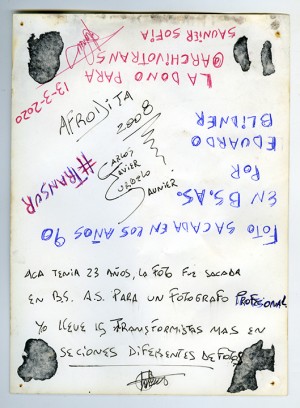 ACA TENIA 23 AÑOS, LA FOTO FUE SACADA
EN BS. A.S. PARA UN FOTOGRAFO PROFESIONAL
YO LLEVE 15 TRANSFORMISTAS MAS EN
SECIONES DIFERENTES DE FOTOS
AFRODITA
2008
CARLOS
JAVIER
SAUNIER
#TRANSUR
FOTO SACADA EN LOS AÑOS 90
EN BS.AS.
POR
EDUARDO
BLIDNER
LA DONO PARA
@ARCHIVOTRANS
SAUNIER SOFIA
13-3-2020